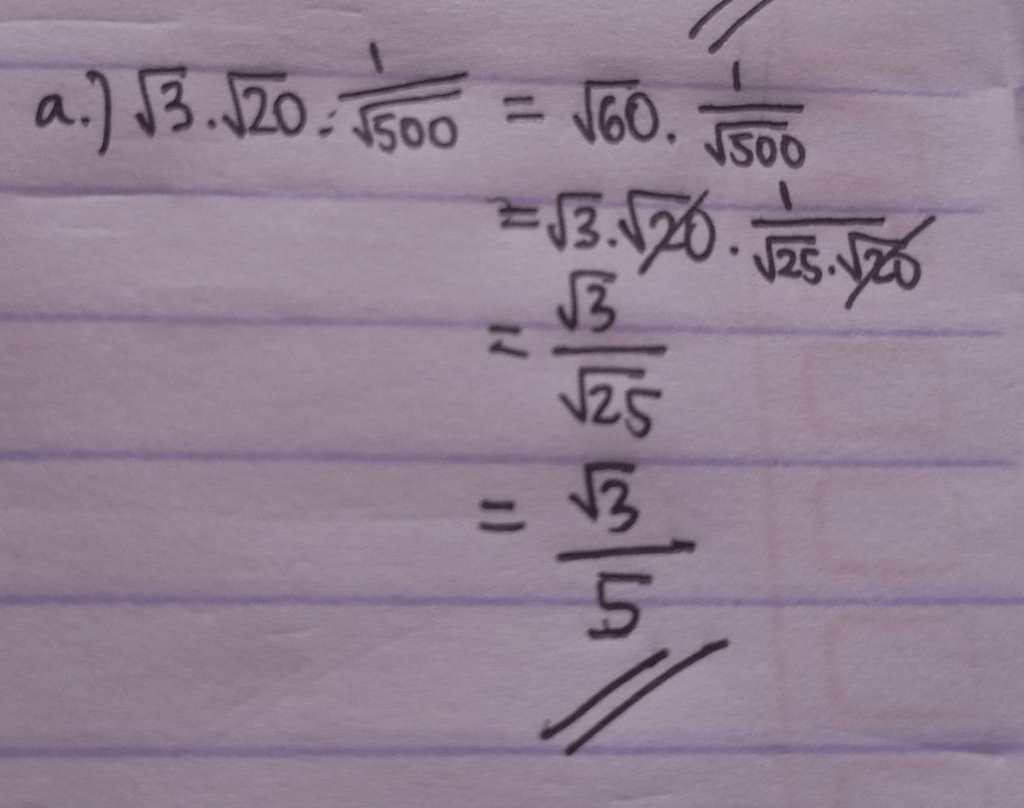 a.) √3 . √20 : 1/√500 = √60 . 1/√500
= √3 . √20 . 1/√25 . √20
= √3/√25
= √3/5